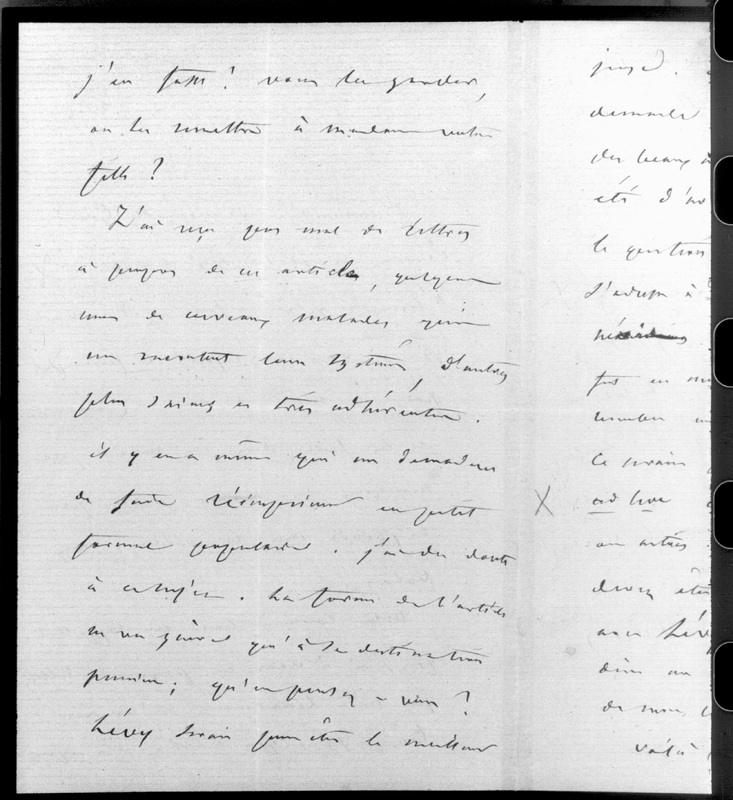 j'en fasse ? vous les garder,
ou les remettre à madame votre
fille ?
J'ai reçu pas mal de lettres
à propos de cet article, quelques
unes de cerveaux malades qui
me racontent leur système, d'autres
plus saines et très adhérentes.
il y en a même qui me demandent
de faire réimprimer en petit
format populaire. j'ai des doutes
à ce sujet. La forme de l'article
ne va guère qu'à sa destination
première ; qu'en pensez-vous ?
Lévy serait peut-être le meilleur
demande
des beaux
été d'
la question
S'adresse à
fut en
Ce serait
ad hoc
devez être
avec Lévy
de nous,
voilà